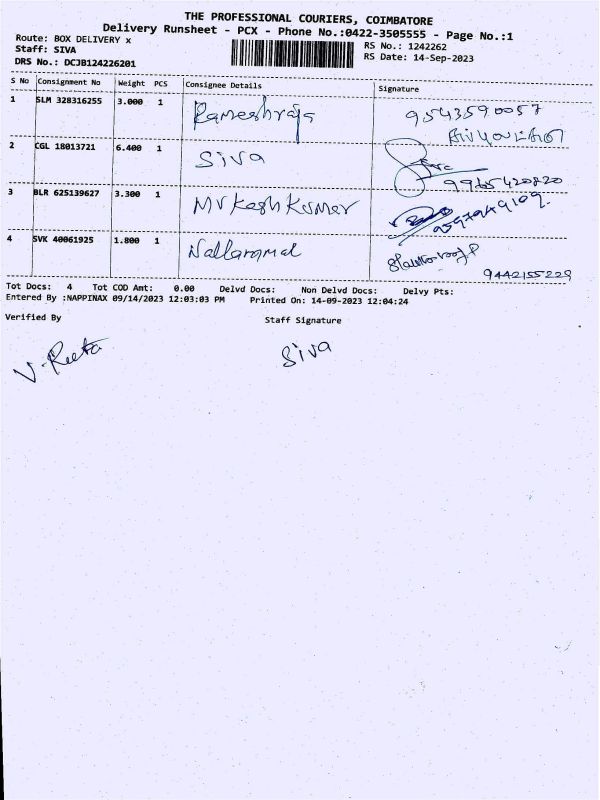 THE PROFESSIONAL COURIERS, COIMBATORE
Delivery Runsheet - PCX - Phone No.:0422-3505555 - Page No.:1
Route: BOX DELIVERY x
RS No.: 1242262
Staff: SIVA
RS Date: 14-Sep-2023
DRS No.: DCJB124226201
S No Consignment No Weight PCS Consignee Details Signature
1 SLM 328316255 3.000 1 Rameshraja 9543590057
2 CGL 18013721 6.400 1 Siva
9965420820
3 BLR 625139627 3.300 1 Mukesh Kumar
4 SVK 40061925 1.800 1
9442155229
Tot Docs: 4 Tot COD Amt: 0.00 Delvd Docs: Non Delvd Docs: Delvy Pts:
Entered By :NAPPINAX 09/14/2023 12:03:03 PM Printed On: 14-09-2023 12:04:24
Verified By Staff Signature
V. Reeta Siva